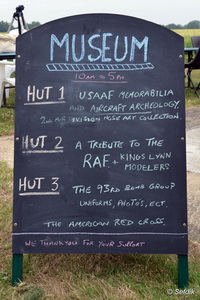 MUSEUM
10AM TO 5PM
HUT 1 USAAF MEMORABILIA
AND AIRCRAFT ARCHEOLOGY,
2ND AIR DIVISION NOSE ART COLLECTION
HUT 2 A TRIBUTE TO THE
RAF + KINGS LYNN
MODELERS
HUT 3 THE 93RD BOMB GROUP
UNIFORMS, PHOTO'S, ECT.
THE AMERICAN RED CROSS.
WE THANK YOU FOR YOUR SUPPORT